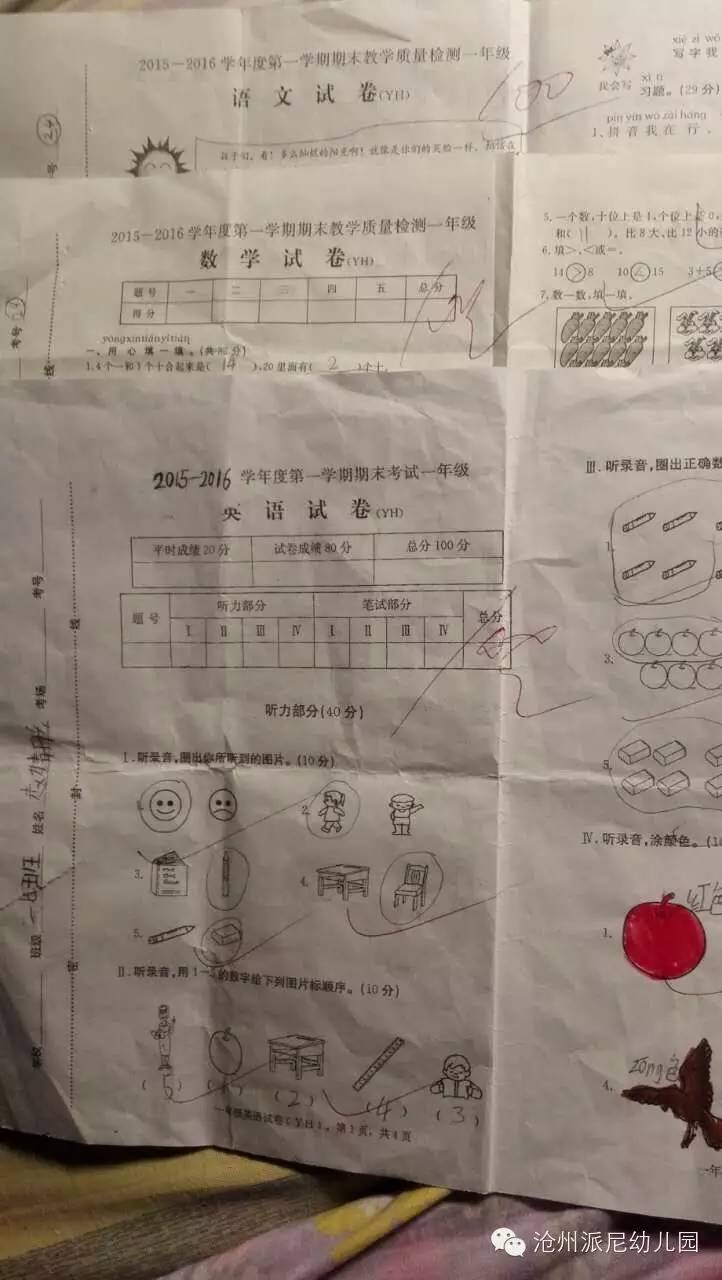 2015—2016学年度第一学期期末教学质量检测一年级
语 文 试 卷(YH)
100
孩子们，看！多么灿烂的阳光啊！就像是你们的笑脸一样。
xiě zì wǒ
写 字 我
我会写
习题。(29分)
pīn yīn wǒ zài háng
1、拼 音 我 在 行。
2015—2016学年度第一学期期末教学质量检测一年级
数 学 试 卷(YH)
题号 一 二 三 四 五 总分
得分
yòngxīntiányītián
一、用 心 填 一 填。
1.4个一和1个十合起来是( 14 ),20里面有( 2 )个十。
考号
线
5.一个数,十位上是1,个位上是0,
和( 11 )。比8大、比12小的
6.填>、<或=。
14 > 8 10 < 15 3+5
7.数一数,填一填。
2015-2016 学年度第一学期期末考试一年级
英 语 试 卷(YH)
平时成绩20分 试卷成绩80分 总分100分
题号 听力部分 笔试部分 总分
Ⅰ Ⅱ Ⅲ Ⅳ Ⅰ Ⅱ Ⅲ Ⅳ
听力部分(40分)
Ⅰ.听录音,圈出你所听到的图片。(10分)
1.
2.
3.
4.
5.
Ⅱ.听录音,用1—5的数字给下列图片标顺序。(10分)
( 5 ) ( 1 ) ( 2 ) ( 4 ) ( 3 )
一年级英语试卷(YH)，第1页，共4页
学校
班级
姓名
考场
考号
密
封
线
Ⅲ.听录音,圈出正确数
1.
3.
5.
Ⅳ.听录音,涂颜色。
1.
红色
4.
一年
沧州派尼幼儿园